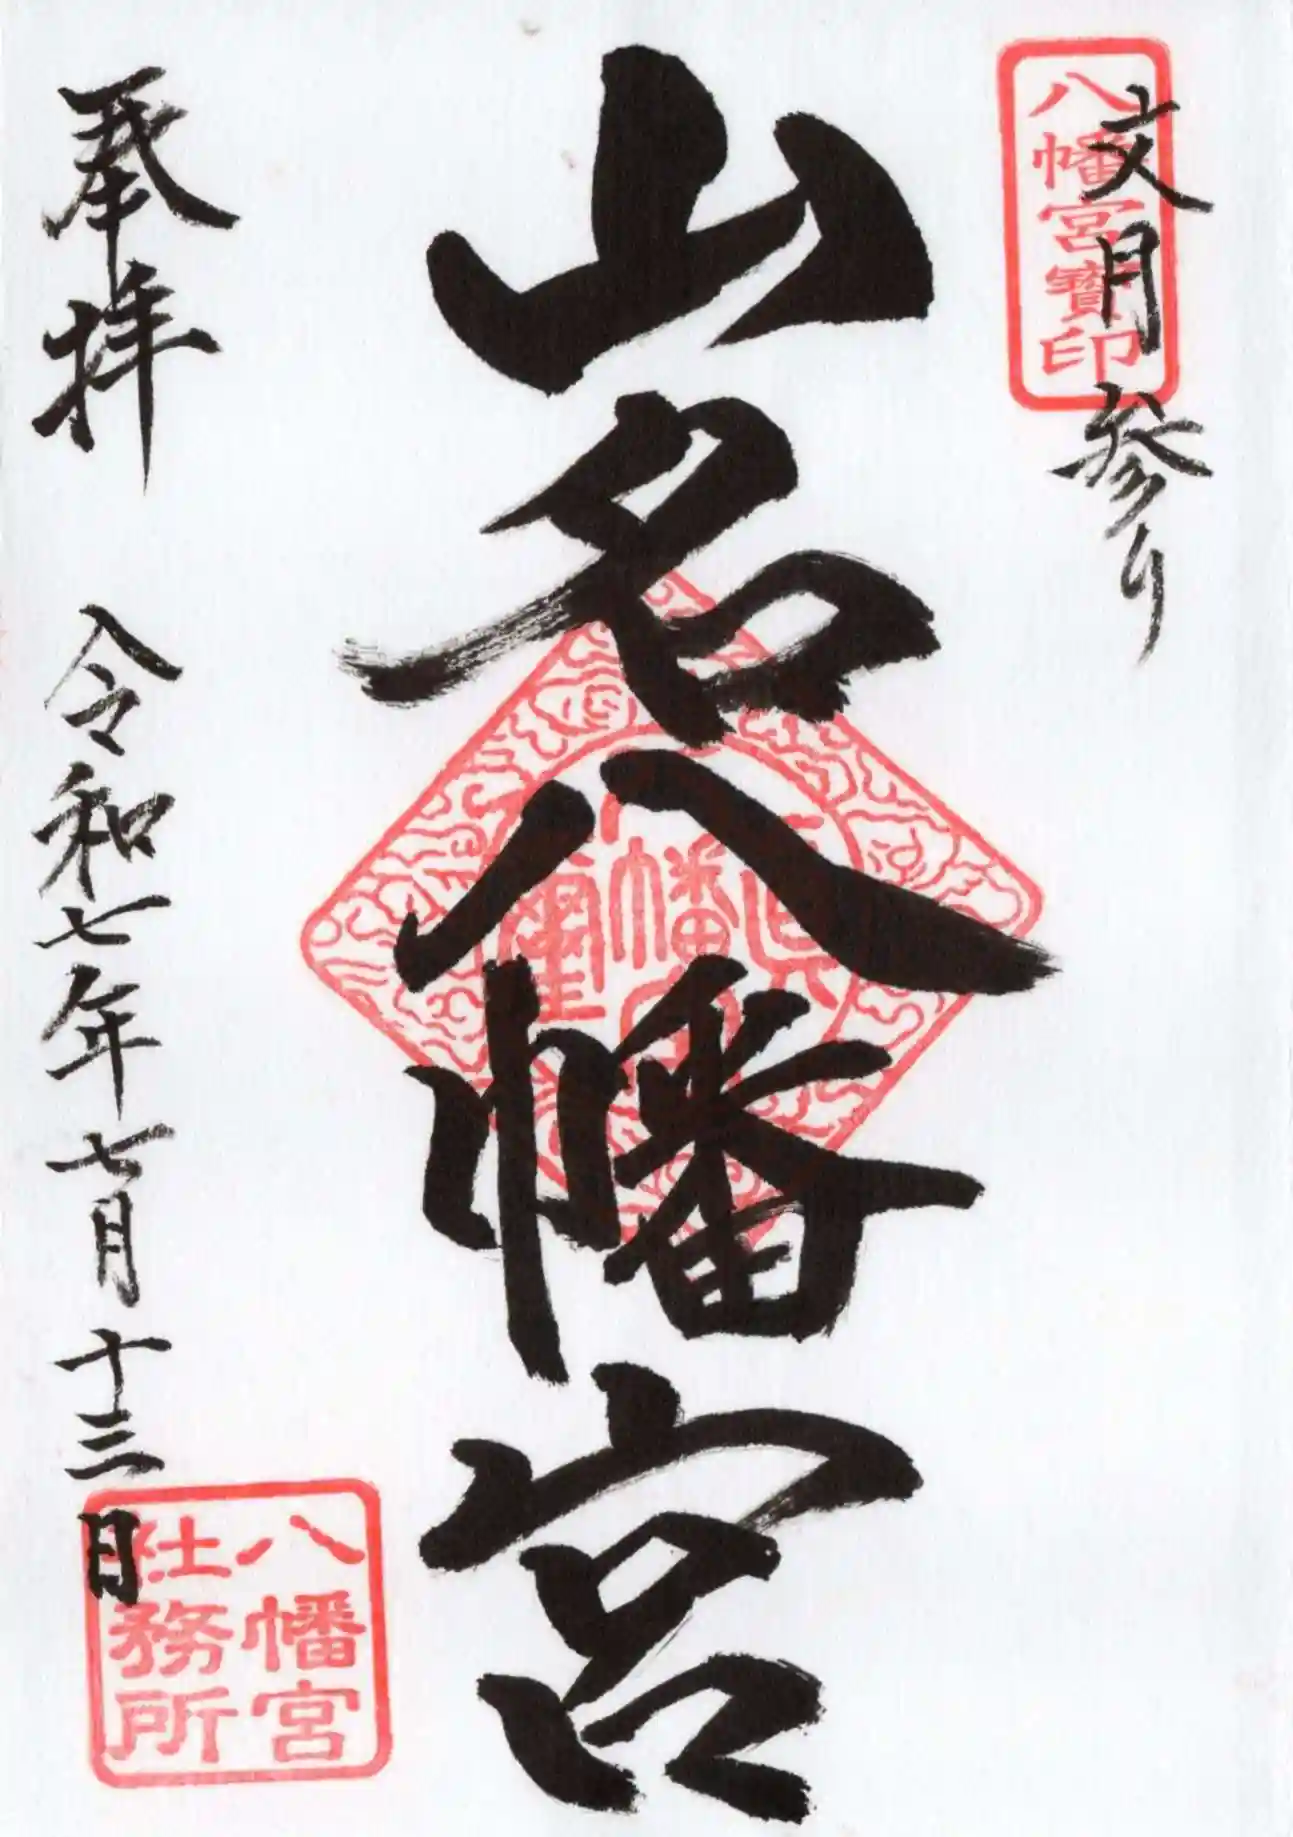 文月参り
八幡宮寶印
山名八幡宮
奉拝
令和七年七月十三日
八幡宮
社務所